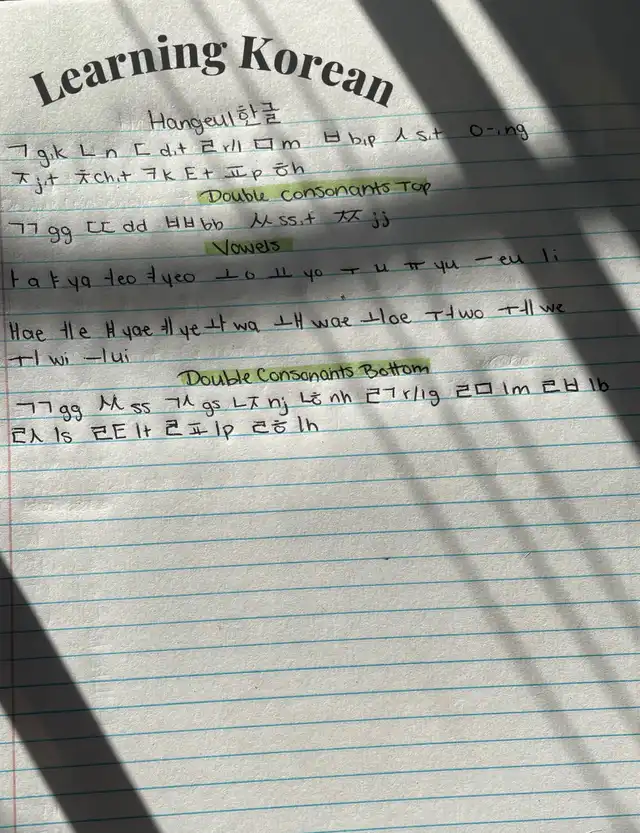 Learning Korean
Hangeul 한글
ㄱ g,k ㄴ n ㄷ d,t ㄹ r/l ㅁ m ㅂ b,p ㅅ s,t ㅇ -,ng
ㅈ j,t ㅊ ch,t ㅋ k ㅌ t ㅍ p ㅎ h
Double Consonants Top
ㄲ gg ㄸ dd ㅃ bb ㅆ ss,t ㅉ jj
Vowels
ㅏ a ㅑ ya ㅓ eo ㅕ yeo ㅗ o ㅛ yo ㅜ u ㅠ yu ㅡ eu ㅣ i
ㅐ ae ㅔ e ㅒ yae ㅖ ye ㅘ wa ㅙ wae ㅚ oe ㅝ wo ㅞ we
ㅟ wi ㅢ ui
Double Consonants Bottom
ㄲ gg ㅆ ss ㄳ gs ㄵ nj ㄶ nh ㄺ r/lg ㄻ lm ㄼ lb
ㄽ ls ㄾ lt ㄿ lp ㅀ lh